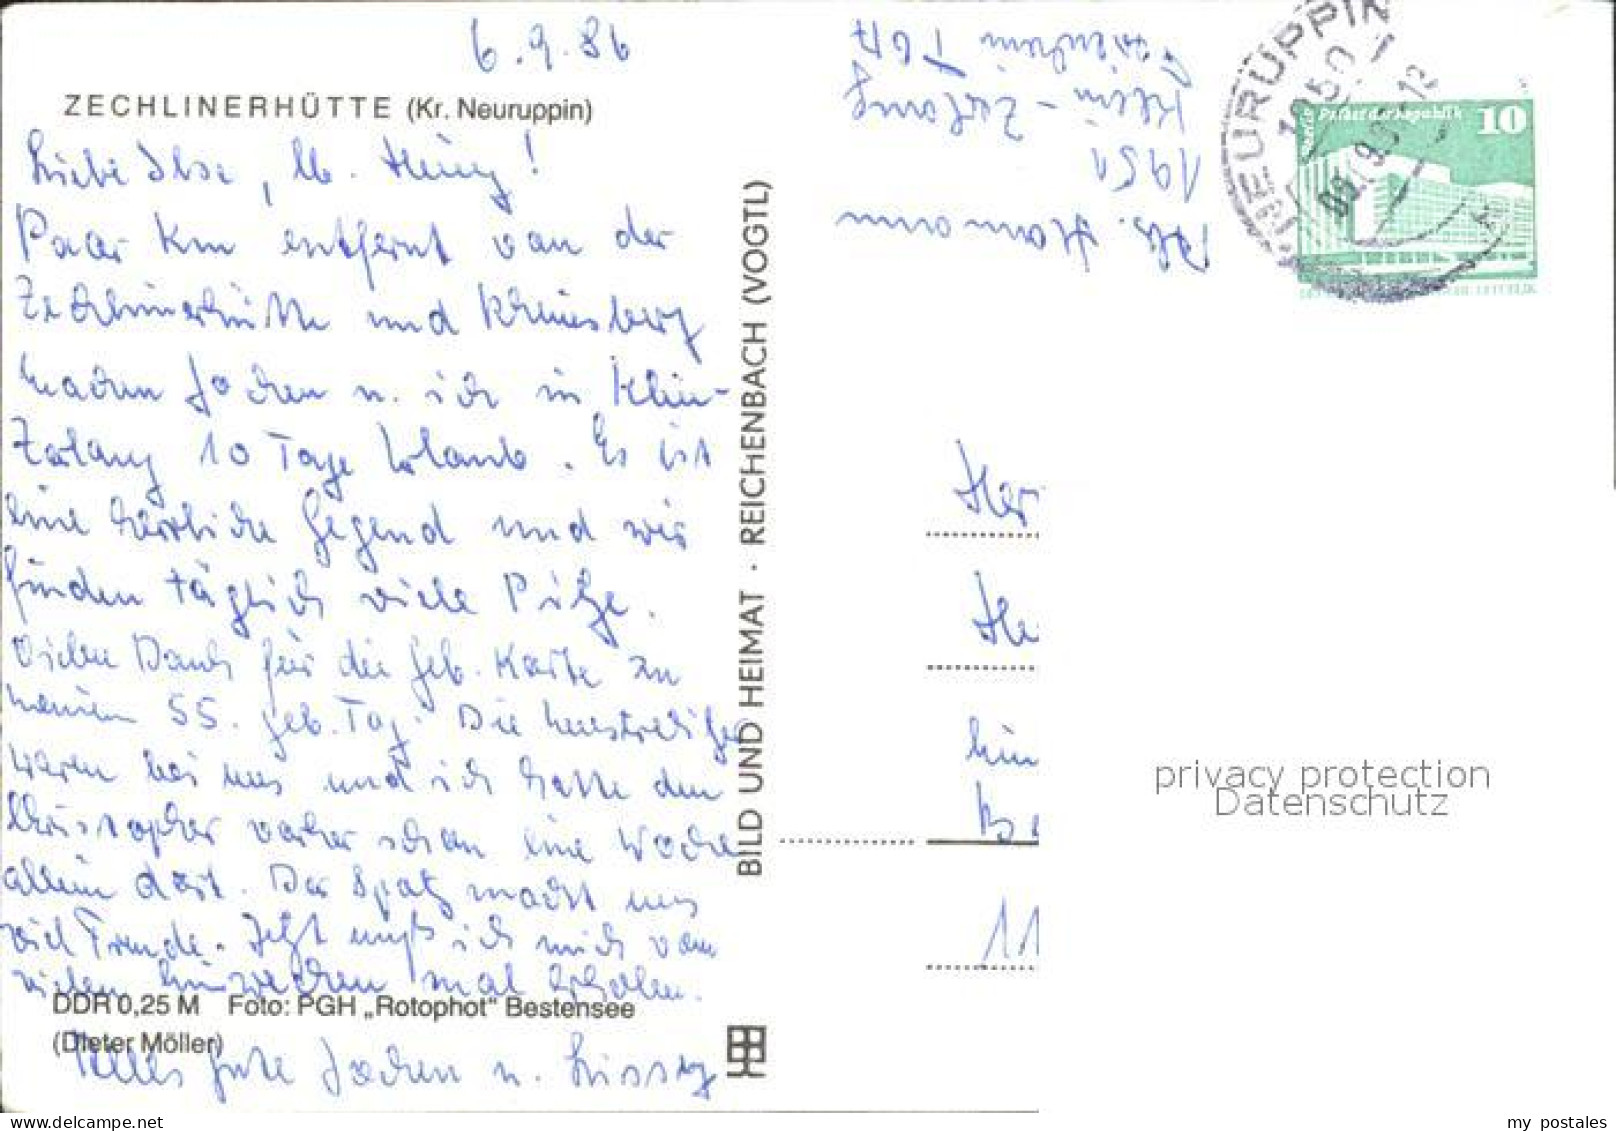 6.9.86
ZECHLINERHÜTTE (Kr. Neuruppin)
Liebe Ilse, lb. Heinz!
Paar km entfernt von der
Zechlinerhütte und Rheinsberg
machen Jochen u. ich in Klein-
Zerlang 10 Tage Urlaub. Es ist
eine herrliche Gegend und wir
finden täglich viele Pilze.
Vielen Dank für die Geb. Karte zu
meinem 55. Geb. Tag. Die
waren bei uns und ich hatte den
Christopher vorher schon eine Woche
allein dort. Der Spatz macht uns
viel Freude. Jetzt muß ich mich vom
vielen Einwecken mal erholen.
Alles Gute Jochen u. Lissy
DDR 0,25 M Foto: PGH „Rotophot“ Bestensee
(Dieter Möller)
BILD UND HEIMAT · REICHENBACH (VOGTL)
Abs. Hamann
1951
Klein-Zerlang
NEURUPPIN 1
1950
Palast der Republik
10
Her
He
Be
11
privacy protection
Datenschutz
my postales